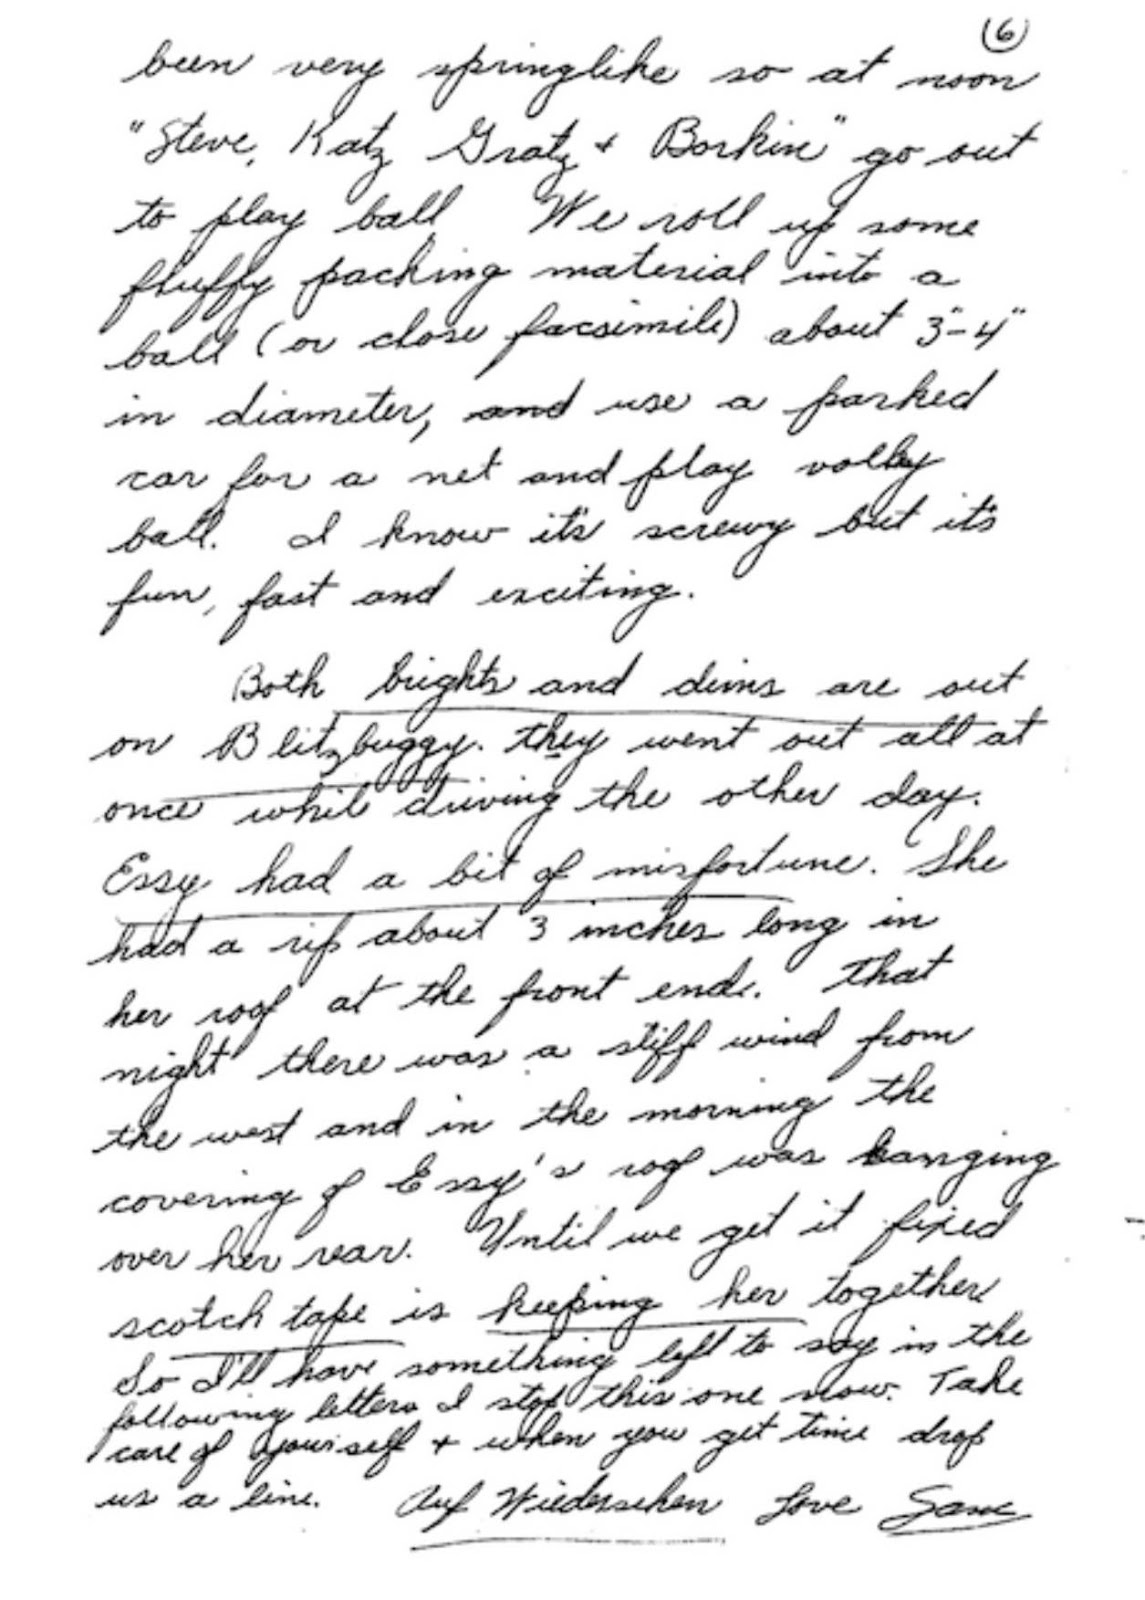 6
been very springlike so at noon
"Steve, Katz Gratz + Borkin" go out
to play ball We roll up some
fluffy packing material into a
ball (or close facsimile) about 3"-4"
in diameter, and use a parked
car for a net and play volley
ball. I know it's screwy but it's
fun, fast and exciting.
Both brights and dims are out
on Blitzbuggy. they went out all at
once while driving the other day.
Essy had a bit of misfortune. She
had a rip about 3 inches long in
her roof at the front end. That
night there was a stiff wind from
the west and in the morning the
covering of Essy's roof was hanging
over her rear. Until we get it fixed
scotch tape is keeping her together
So I'll have something left to say in the
following letters I stop this one now. Take
care of yourself + when you get time drop
us a line. Auf Wiedersehen Love